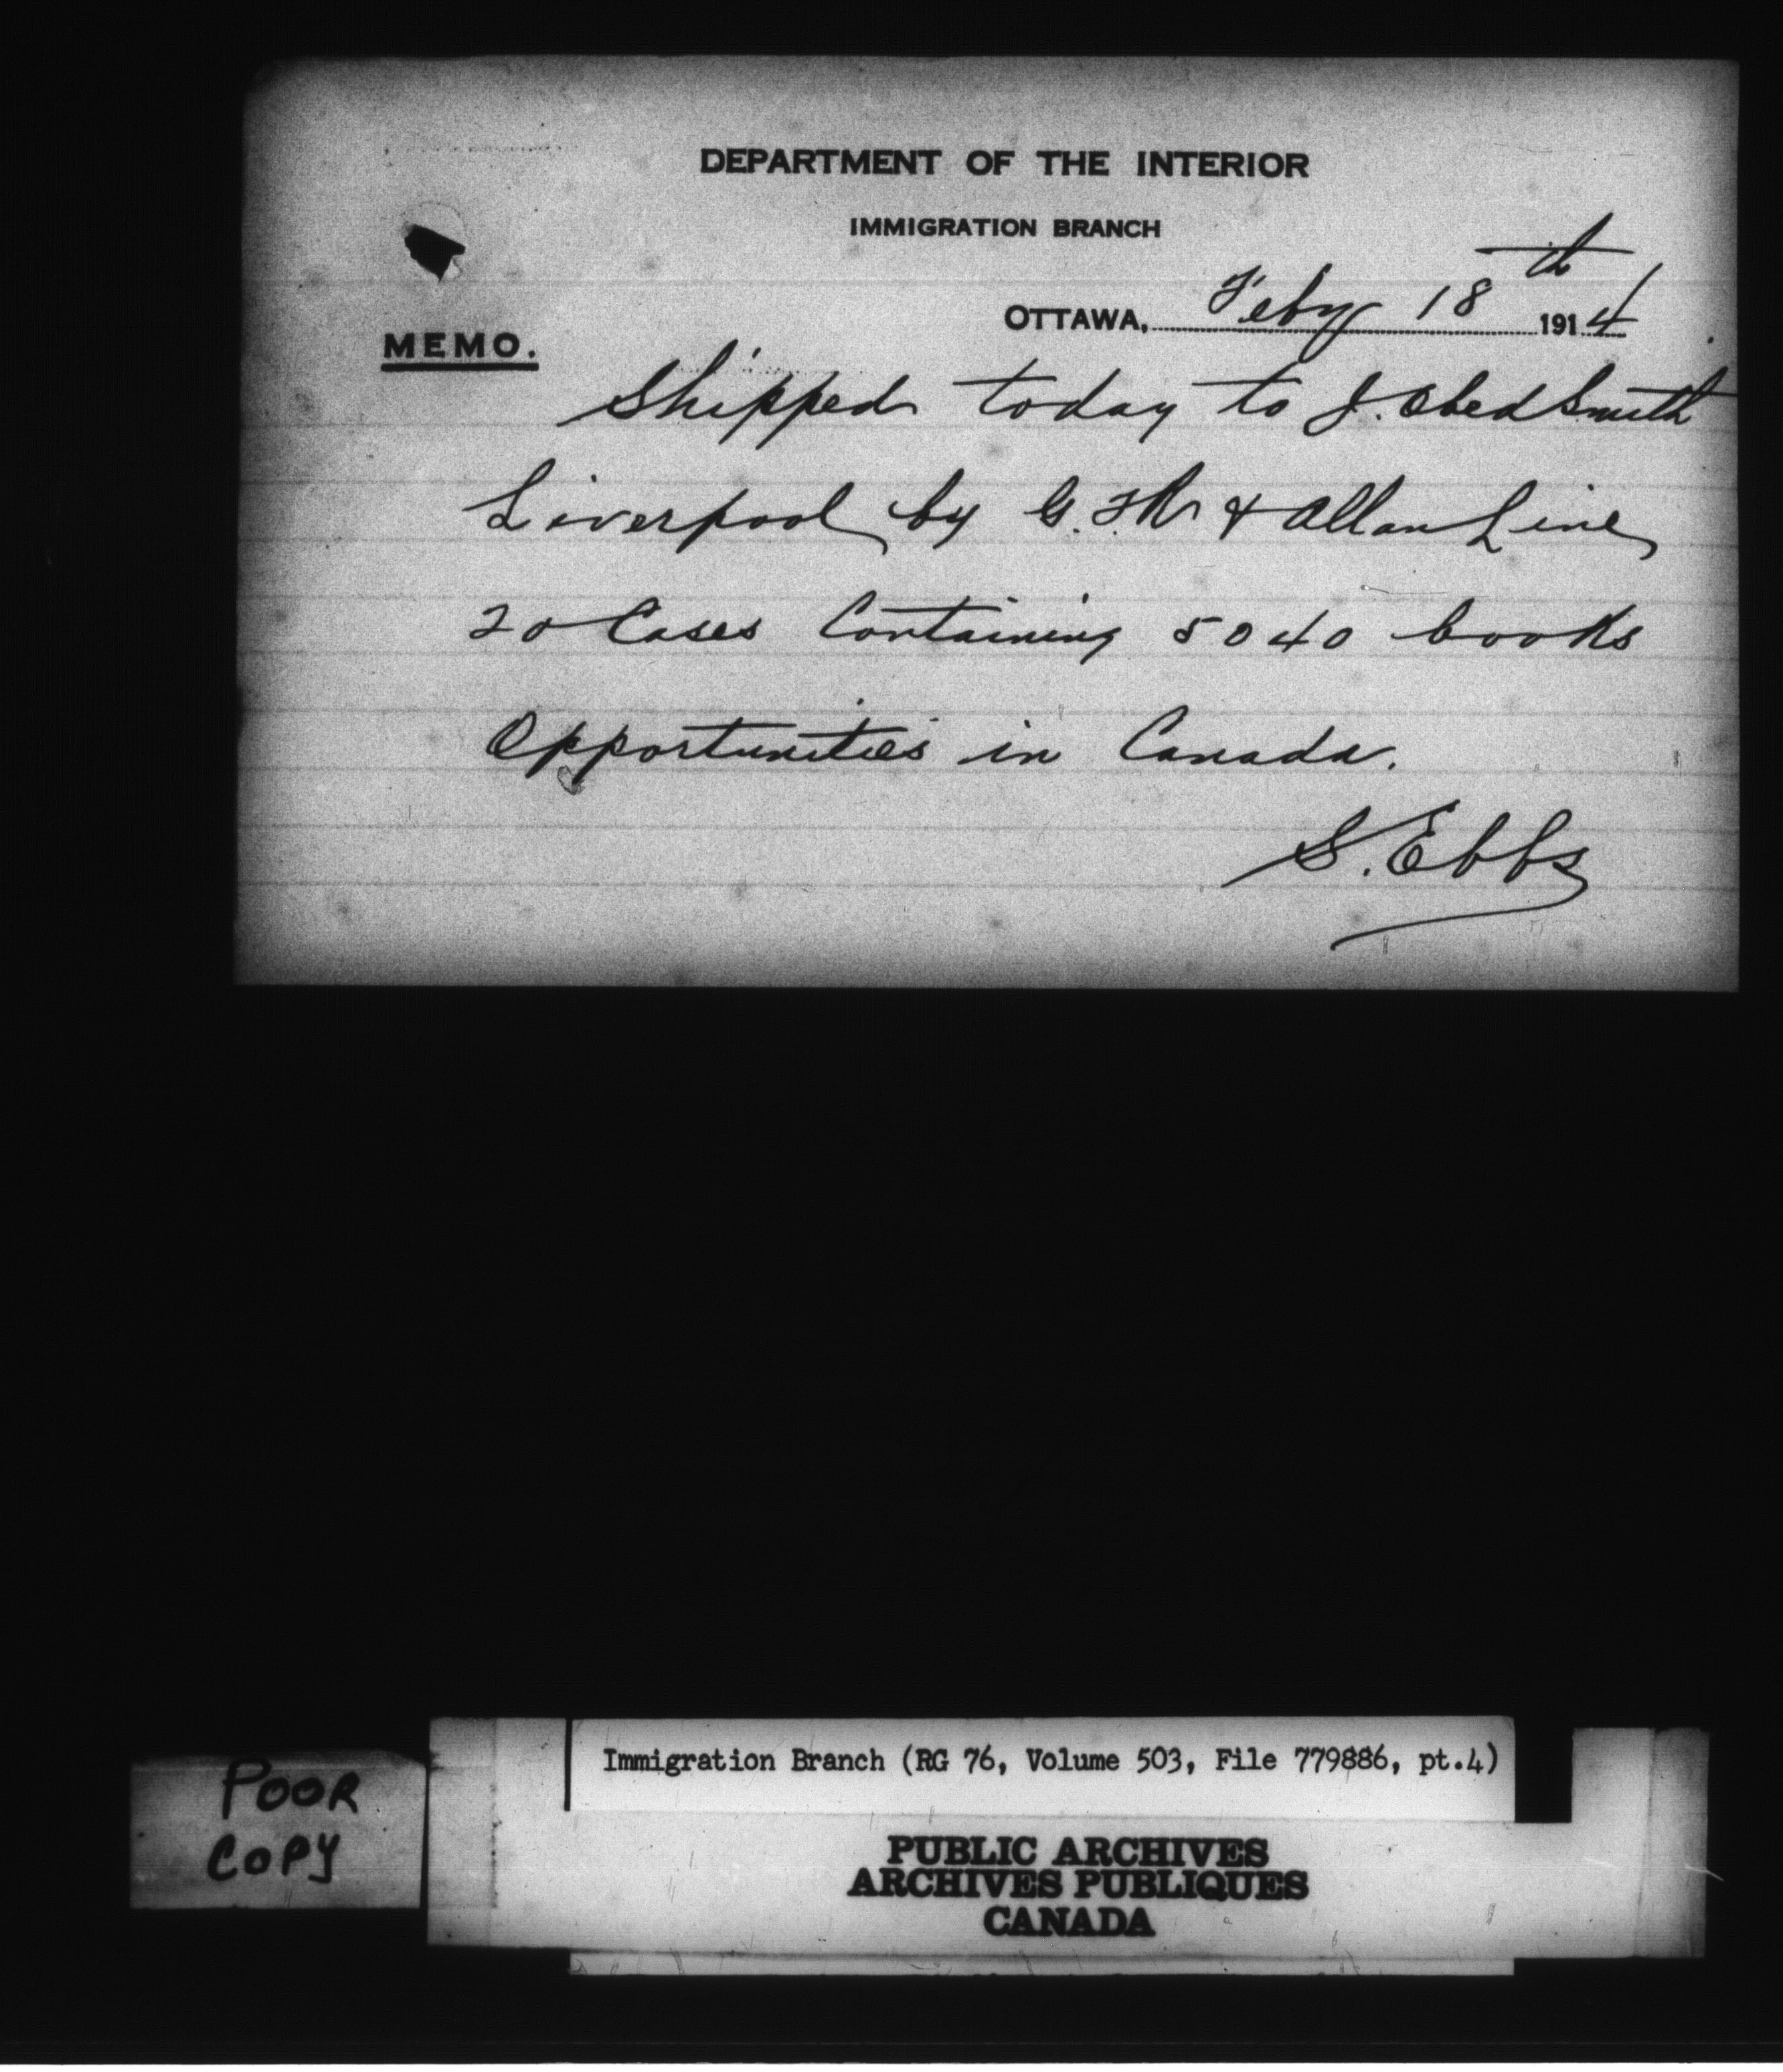 DEPARTMENT OF THE INTERIOR
IMMIGRATION BRANCH
OTTAWA, Feby 18th 1914
MEMO.
Shipped today to J. Obed Smith
Liverpool by G. T. R. & Allan Line
20 Cases Containing 5040 books
Opportunities in Canada.
S. Ebbs
POOR
COPY
Immigration Branch (RG 76, Volume 503, File 779886, pt.4)
PUBLIC ARCHIVES
ARCHIVES PUBLIQUES
CANADA